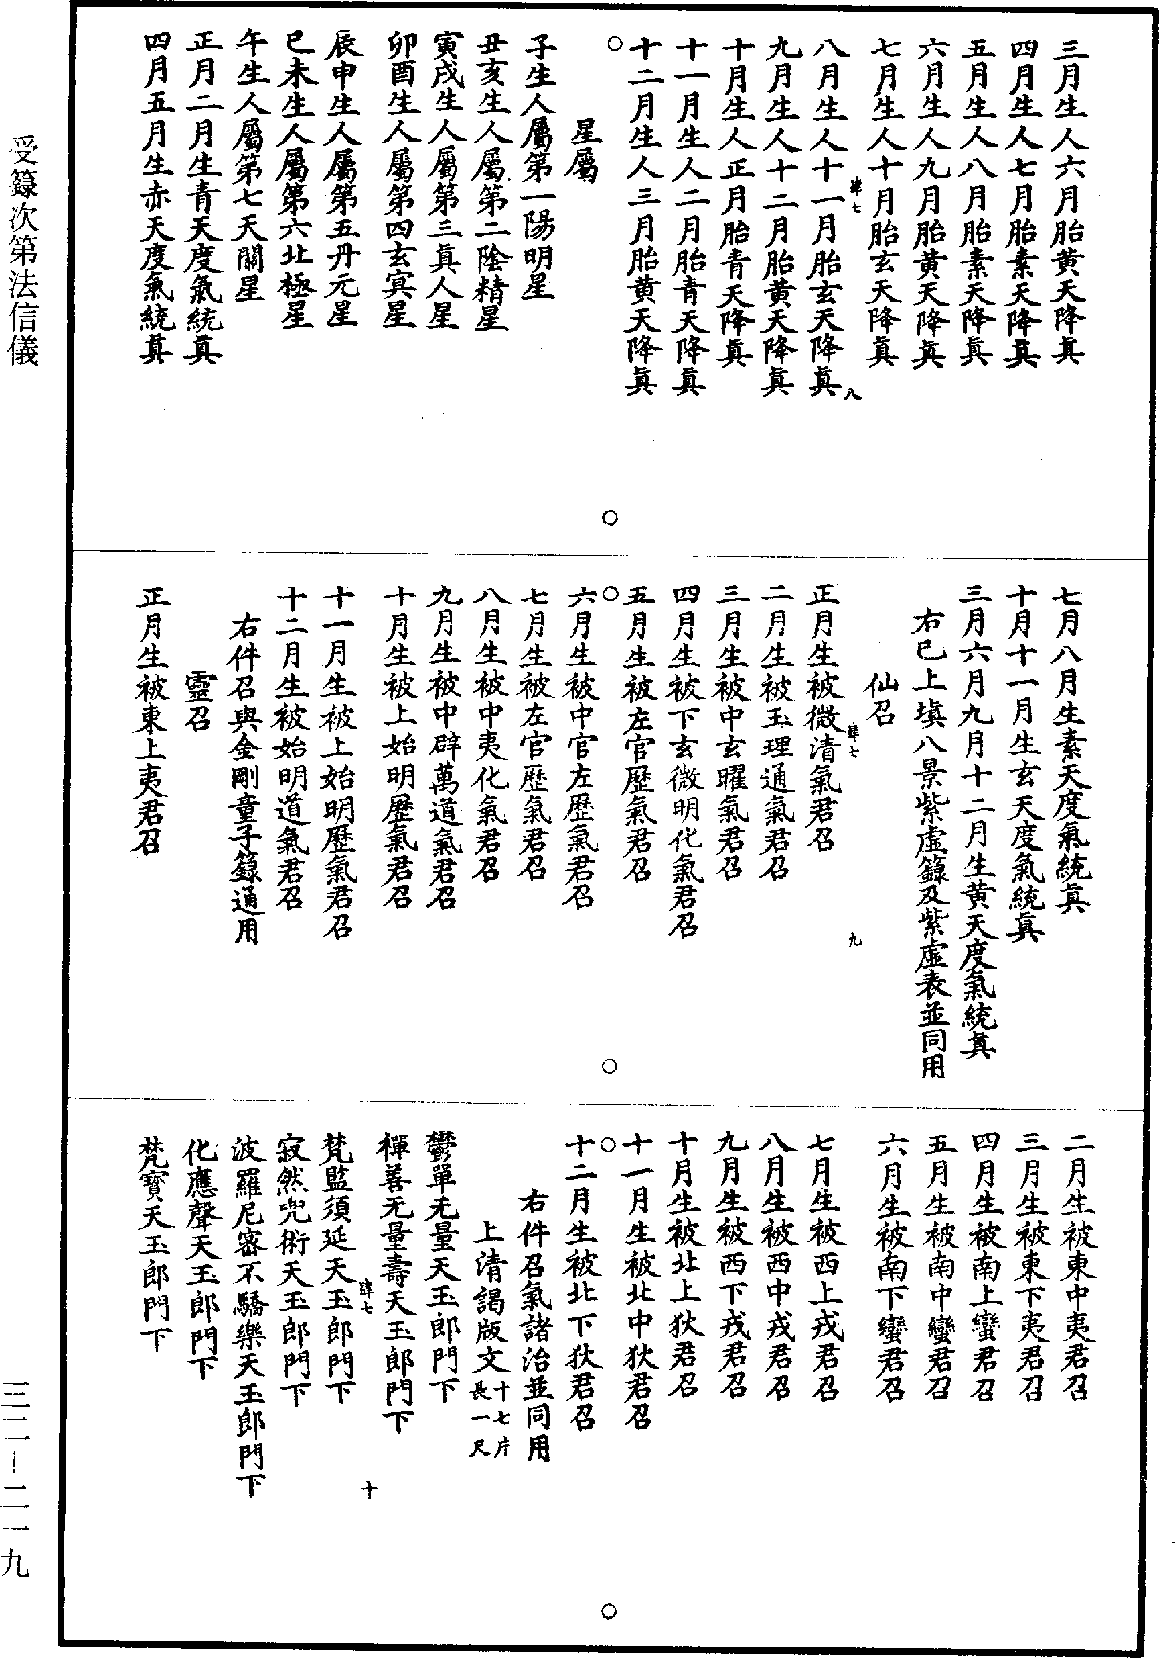 三月生人六月胎黃天降真
四月生人七月胎素天降真
五月生人八月胎素天降真
六月生人九月胎黃天降真
七月生人十月胎玄天降真
肆七
八
八月生人十一月胎玄天降真
九月生人十二月胎黃天降真
十月生人正月胎青天降真
十一月生人二月胎青天降真
十二月生人三月胎黃天降真
星屬
子生人屬第一陽明星
丑亥生人屬第二陰精星
寅戌生人屬第三真人星
卯酉生人屬第四玄冥星
辰申生人屬第五丹元星
巳未生人屬第六北極星
午生人屬第七天關星
正月二月生青天度氣統真
四月五月生赤天度氣統真
七月八月生素天度氣統真
十月十一月生玄天度氣統真
三月六月九月十二月生黃天度氣統真
右已上填八景紫虛籙及紫虛表並同用
仙召
肆七
九
正月生被微清氣君召
二月生被玉理通氣君召
三月生被中玄曜氣君召
四月生被下玄微明化氣君召
五月生被左官歷氣君召
六月生被中官左歷氣君召
七月生被左官歷氣君召
八月生被中夷化氣君召
九月生被中辟萬道氣君召
十月生被上始明歷氣君召
十一月生被上始明歷氣君召
十二月生被始明道氣君召
右件召與金剛童子籙通用
靈召
正月生被東上夷君召
二月生被東中夷君召
三月生被東下夷君召
四月生被南上蠻君召
五月生被南中蠻君召
六月生被南下蠻君召
七月生被西上戎君召
八月生被西中戎君召
九月生被西下戎君召
十月生被北上狄君召
十一月生被北中狄君召
十二月生被北下狄君召
右件召氣諸治並同用
上清謁版文十七片長一尺
鬱單无量天玉郎門下
禪善无量壽天玉郎門下
肆七
十
梵監須延天玉郎門下
寂然兜術天玉郎門下
波羅尼密不驕樂天玉郎門下
化應聲天玉郎門下
梵寶天玉郎門下
受籙次第法信儀
三二—二一九